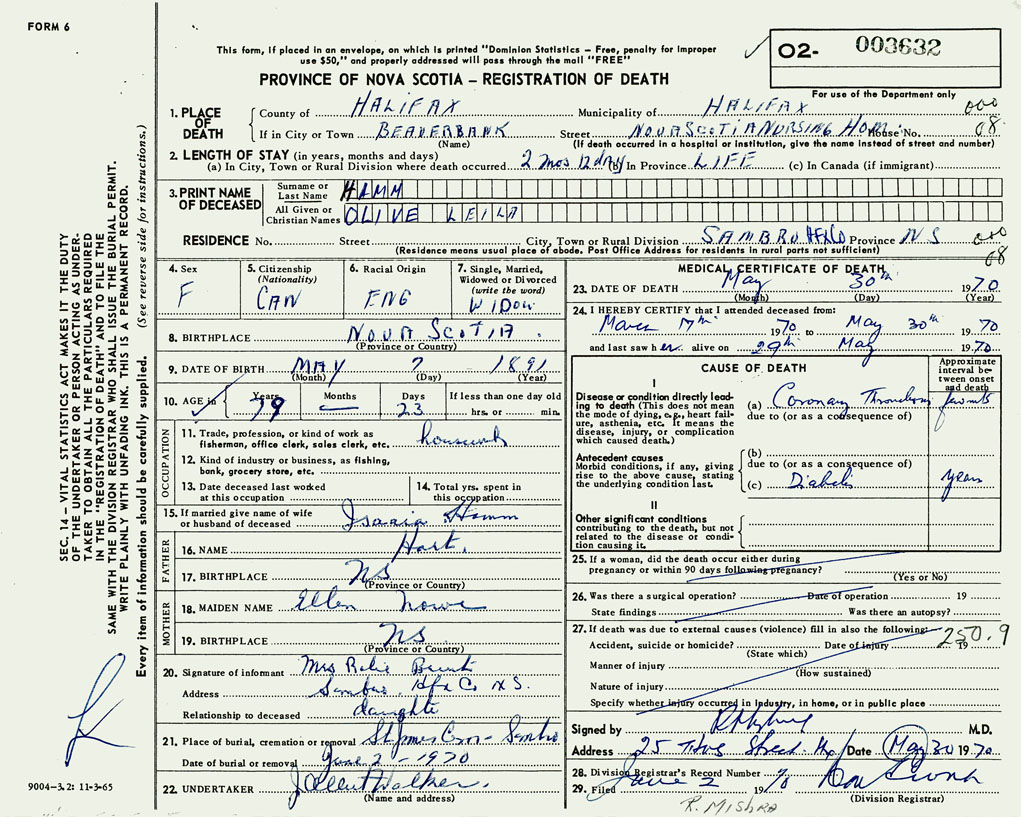 FORM 6
This form, if placed in an envelope, on which is printed "Dominion Statistics – Free, penalty for improper
use $50," and properly addressed will pass through the mail "FREE"
O2- 003632
PROVINCE OF NOVA SCOTIA – REGISTRATION OF DEATH
For use of the Department only
1. PLACE OF DEATH
County of HALIFAX Municipality of HALIFAX 000
If in City or Town BEAVERBANK Street NOVA SCOTIA NURSING HOM. House No. 08
(Name) (If death occurred in a hospital or institution, give the name instead of street and number)
2. LENGTH OF STAY (in years, months and days)
(a) In City, Town or Rural Division where death occurred 2 mos 12 day (b) In Province LIFE (c) In Canada (if immigrant)
3. PRINT NAME OF DECEASED
Surname or Last Name HAMM
All Given or Christian Names OLIVE LEILA
RESIDENCE No. Street City, Town or Rural Division SAMBRO HFX Co Province NS 000
(Residence means usual place of abode. Post Office Address for residents in rural parts not sufficient) 08
4. Sex F
5. Citizenship (Nationality) CAN
6. Racial Origin ENG
7. Single, Married, Widowed or Divorced (write the word) WIDOW
8. BIRTHPLACE NOVA SCOTIA
(Province or Country)
9. DATE OF BIRTH MAY 7 1891
(Month) (Day) (Year)
10. AGE in Years 79 Months — Days 23 If less than one day old hrs. or min.
OCCUPATION
11. Trade, profession, or kind of work as
fisherman, office clerk, sales clerk, etc. housework
12. Kind of industry or business, as fishing,
bank, grocery store, etc.
13. Date deceased last worked
at this occupation
14. Total yrs. spent in
this occupation
15. If married give name of wife
or husband of deceased Hamm
FATHER
16. NAME Hart.
17. BIRTHPLACE NS
(Province or Country)
MOTHER
18. MAIDEN NAME Ellen Nowe
19. BIRTHPLACE NS
(Province or Country)
20. Signature of informant Mrs
Address Sambro Hfx Co N.S.
Relationship to deceased daughte
21. Place of burial, cremation or removal St James Cem - Sambro
Date of burial or removal June 2 - 1970
22. UNDERTAKER J. Allen Walker.
(Name and address)
MEDICAL CERTIFICATE OF DEATH
23. DATE OF DEATH May 30th 1970
(Month) (Day) (Year)
24. I HEREBY CERTIFY that I attended deceased from:
March 17th 1970 to May 30th 1970
and last saw her alive on 29th May 1970
CAUSE OF DEATH
Approximate interval between onset and death
I
Disease or condition directly leading
to death (This does not mean
the mode of dying, e.g., heart failure,
asthenia, etc. It means the
disease, injury, or complication
which caused death.)
(a) Coronary Thrombosis few mts
due to (or as a consequence of)
Antecedent causes
Morbid conditions, if any, giving
rise to the above cause, stating
the underlying condition last.
(b)
due to (or as a consequence of)
(c) Diabetes years
II
Other significant conditions
contributing to the death, but not
related to the disease or condition
causing it.
25. If a woman, did the death occur either during
pregnancy or within 90 days following pregnancy?
(Yes or No)
26. Was there a surgical operation? Date of operation 19
State findings Was there an autopsy?
27. If death was due to external causes (violence) fill in also the following: 250.9
Accident, suicide or homicide? Date of injury 19
(State which)
Manner of injury
(How sustained)
Nature of injury
Specify whether injury occurred in industry, in home, or in public place
Signed by M.D.
Address 25 Street Hx Date May 30 1970
28. Division Registrar's Record Number
29. Filed June 2 1970
(Division Registrar)
R. MISHRA
9004-3.2: 11-3-65
SEC. 14 – VITAL STATISTICS ACT MAKES IT THE DUTY
OF THE UNDERTAKER OR PERSON ACTING AS UNDERTAKER
TO OBTAIN ALL THE PARTICULARS REQUIRED
IN THE "REGISTRATION OF DEATH" AND TO FILE THE
SAME WITH THE DIVISION REGISTRAR WHO SHALL ISSUE THE BURIAL PERMIT.
WRITE PLAINLY WITH UNFADING INK. THIS IS A PERMANENT RECORD.
Every item of information should be carefully supplied. (See reverse side for instructions.)